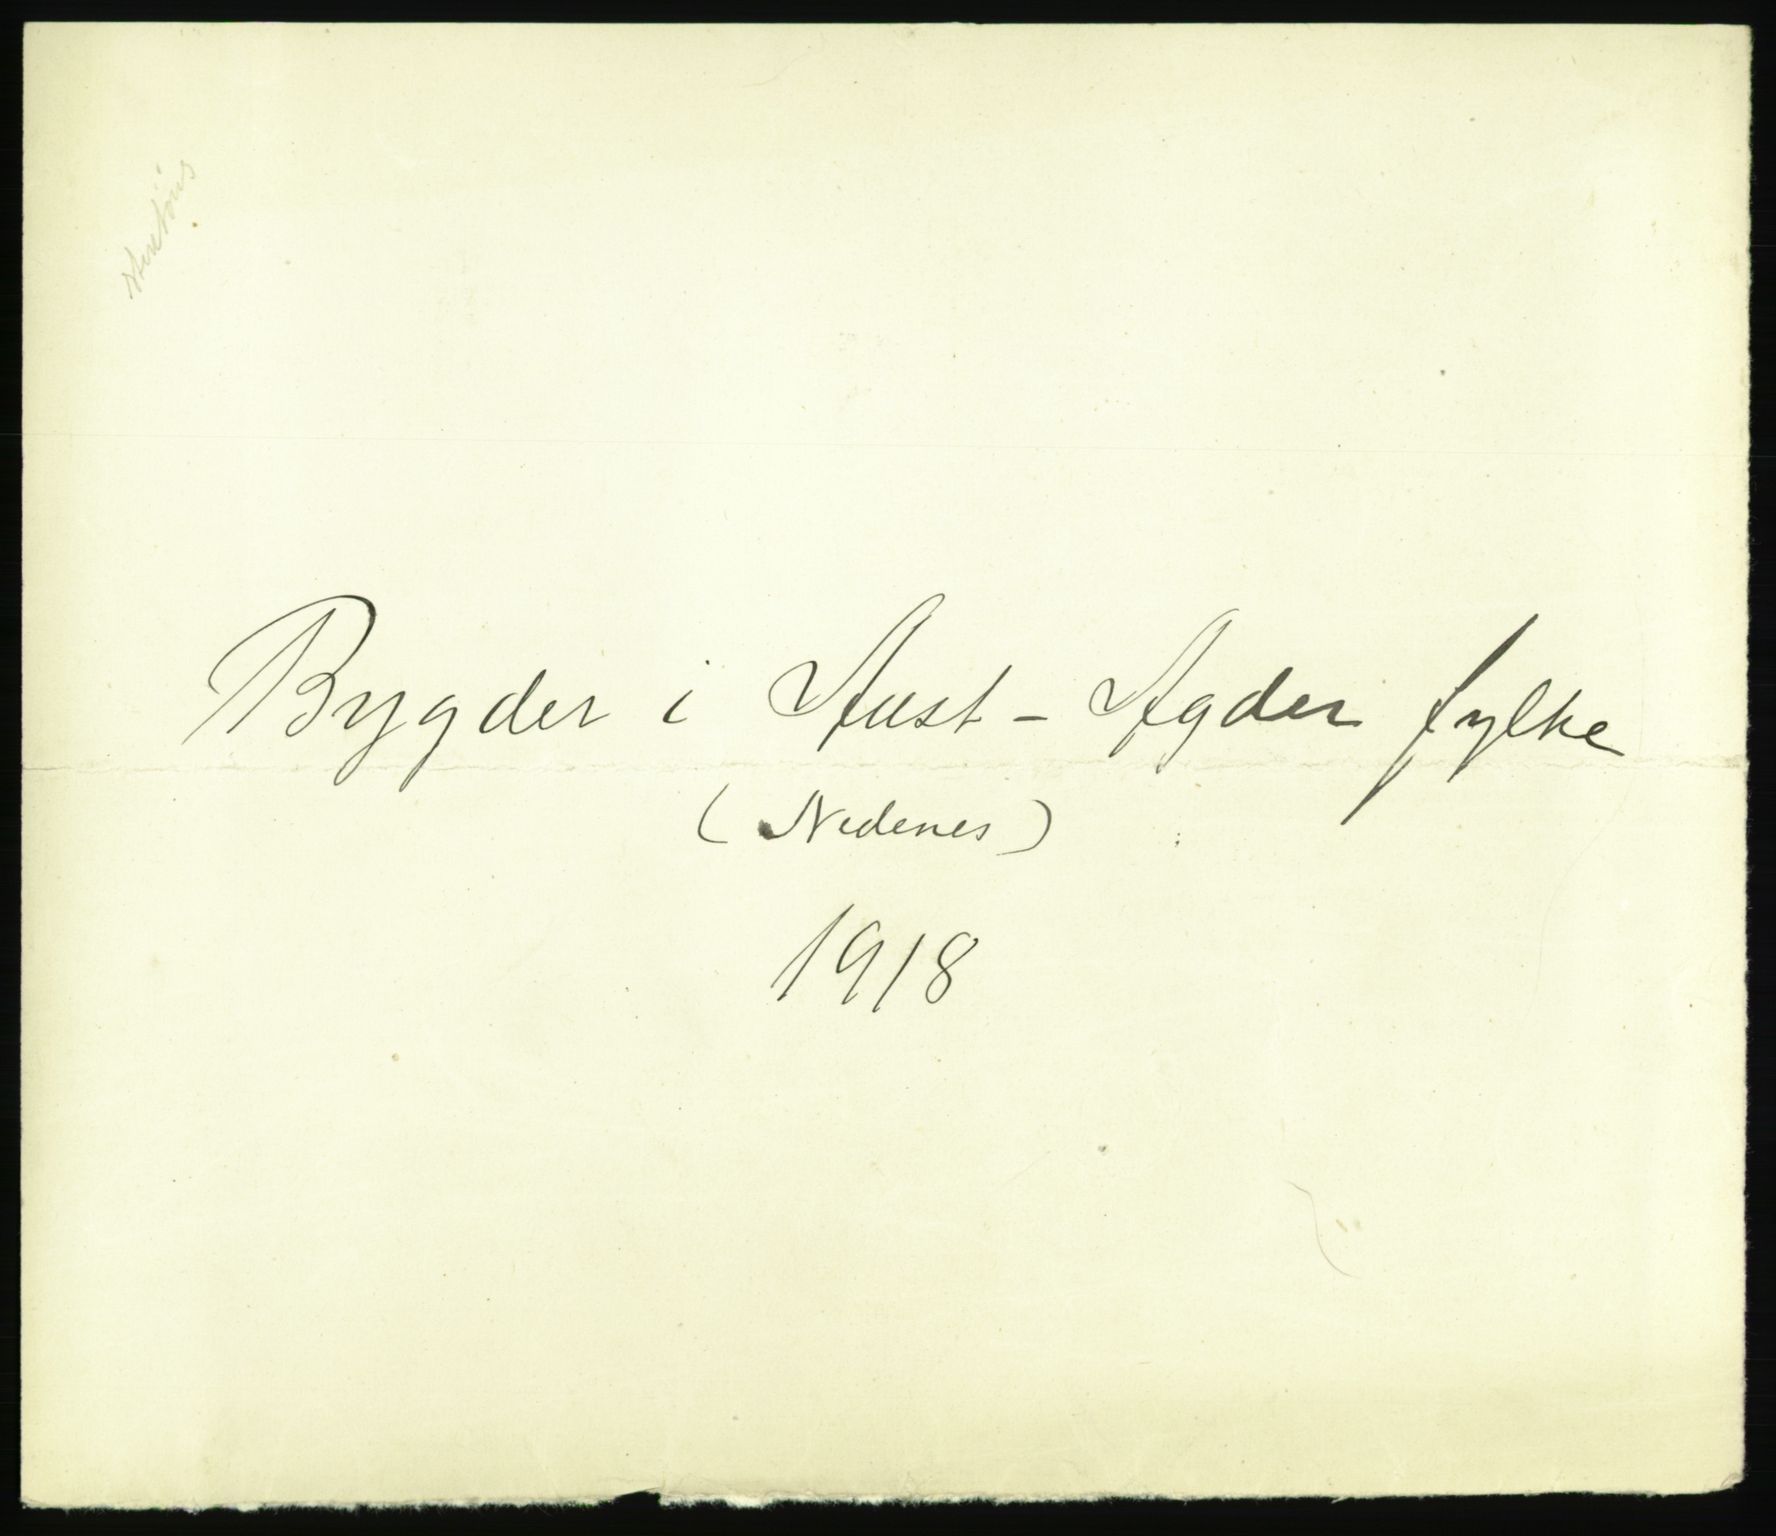 Bygder i Aust-Agder fylke
(Nedenes)
1918